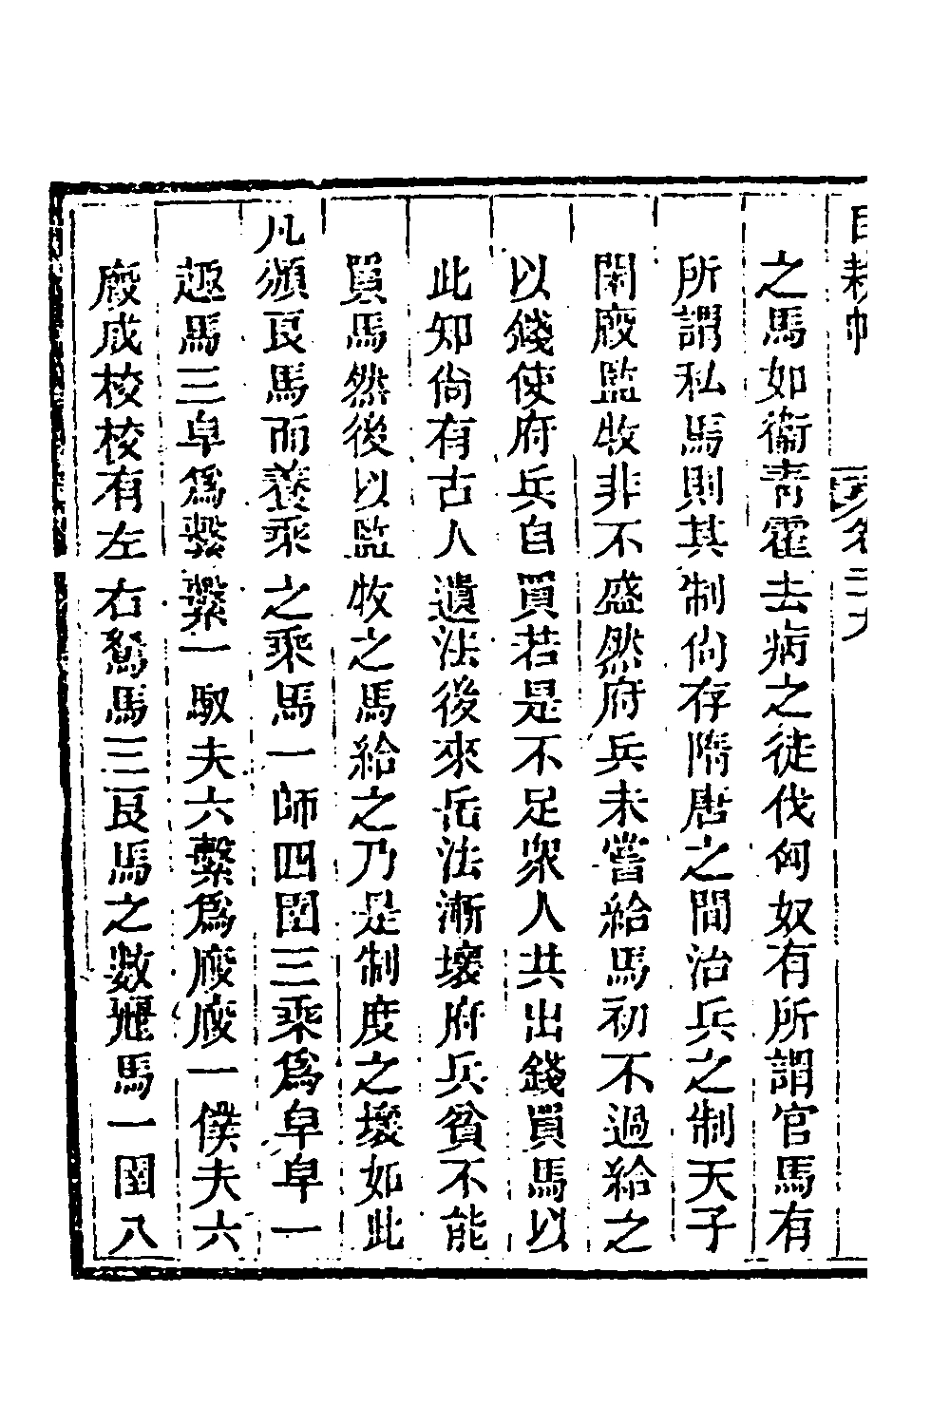 之馬如衞青霍去病之徒伐匈奴有所謂官馬有
所謂私馬則其制尙存隋唐之間治兵之制天子
閑廄監牧非不盛然府兵未嘗給馬初不過給之
以錢使府兵自買若是不足衆人共出錢買馬以
此知尙有古人遺法後來岳法漸壞府兵貧不能
買馬然後以監牧之馬給之乃是制度之壞如此
凡頒良馬而養乘之乘馬一師四圉三乘爲皁皁一
趣馬三皁爲繫繫一馭夫六繫爲廄廄一僕夫六
廄成校校有左右駑馬三良馬之數麗馬一圉八